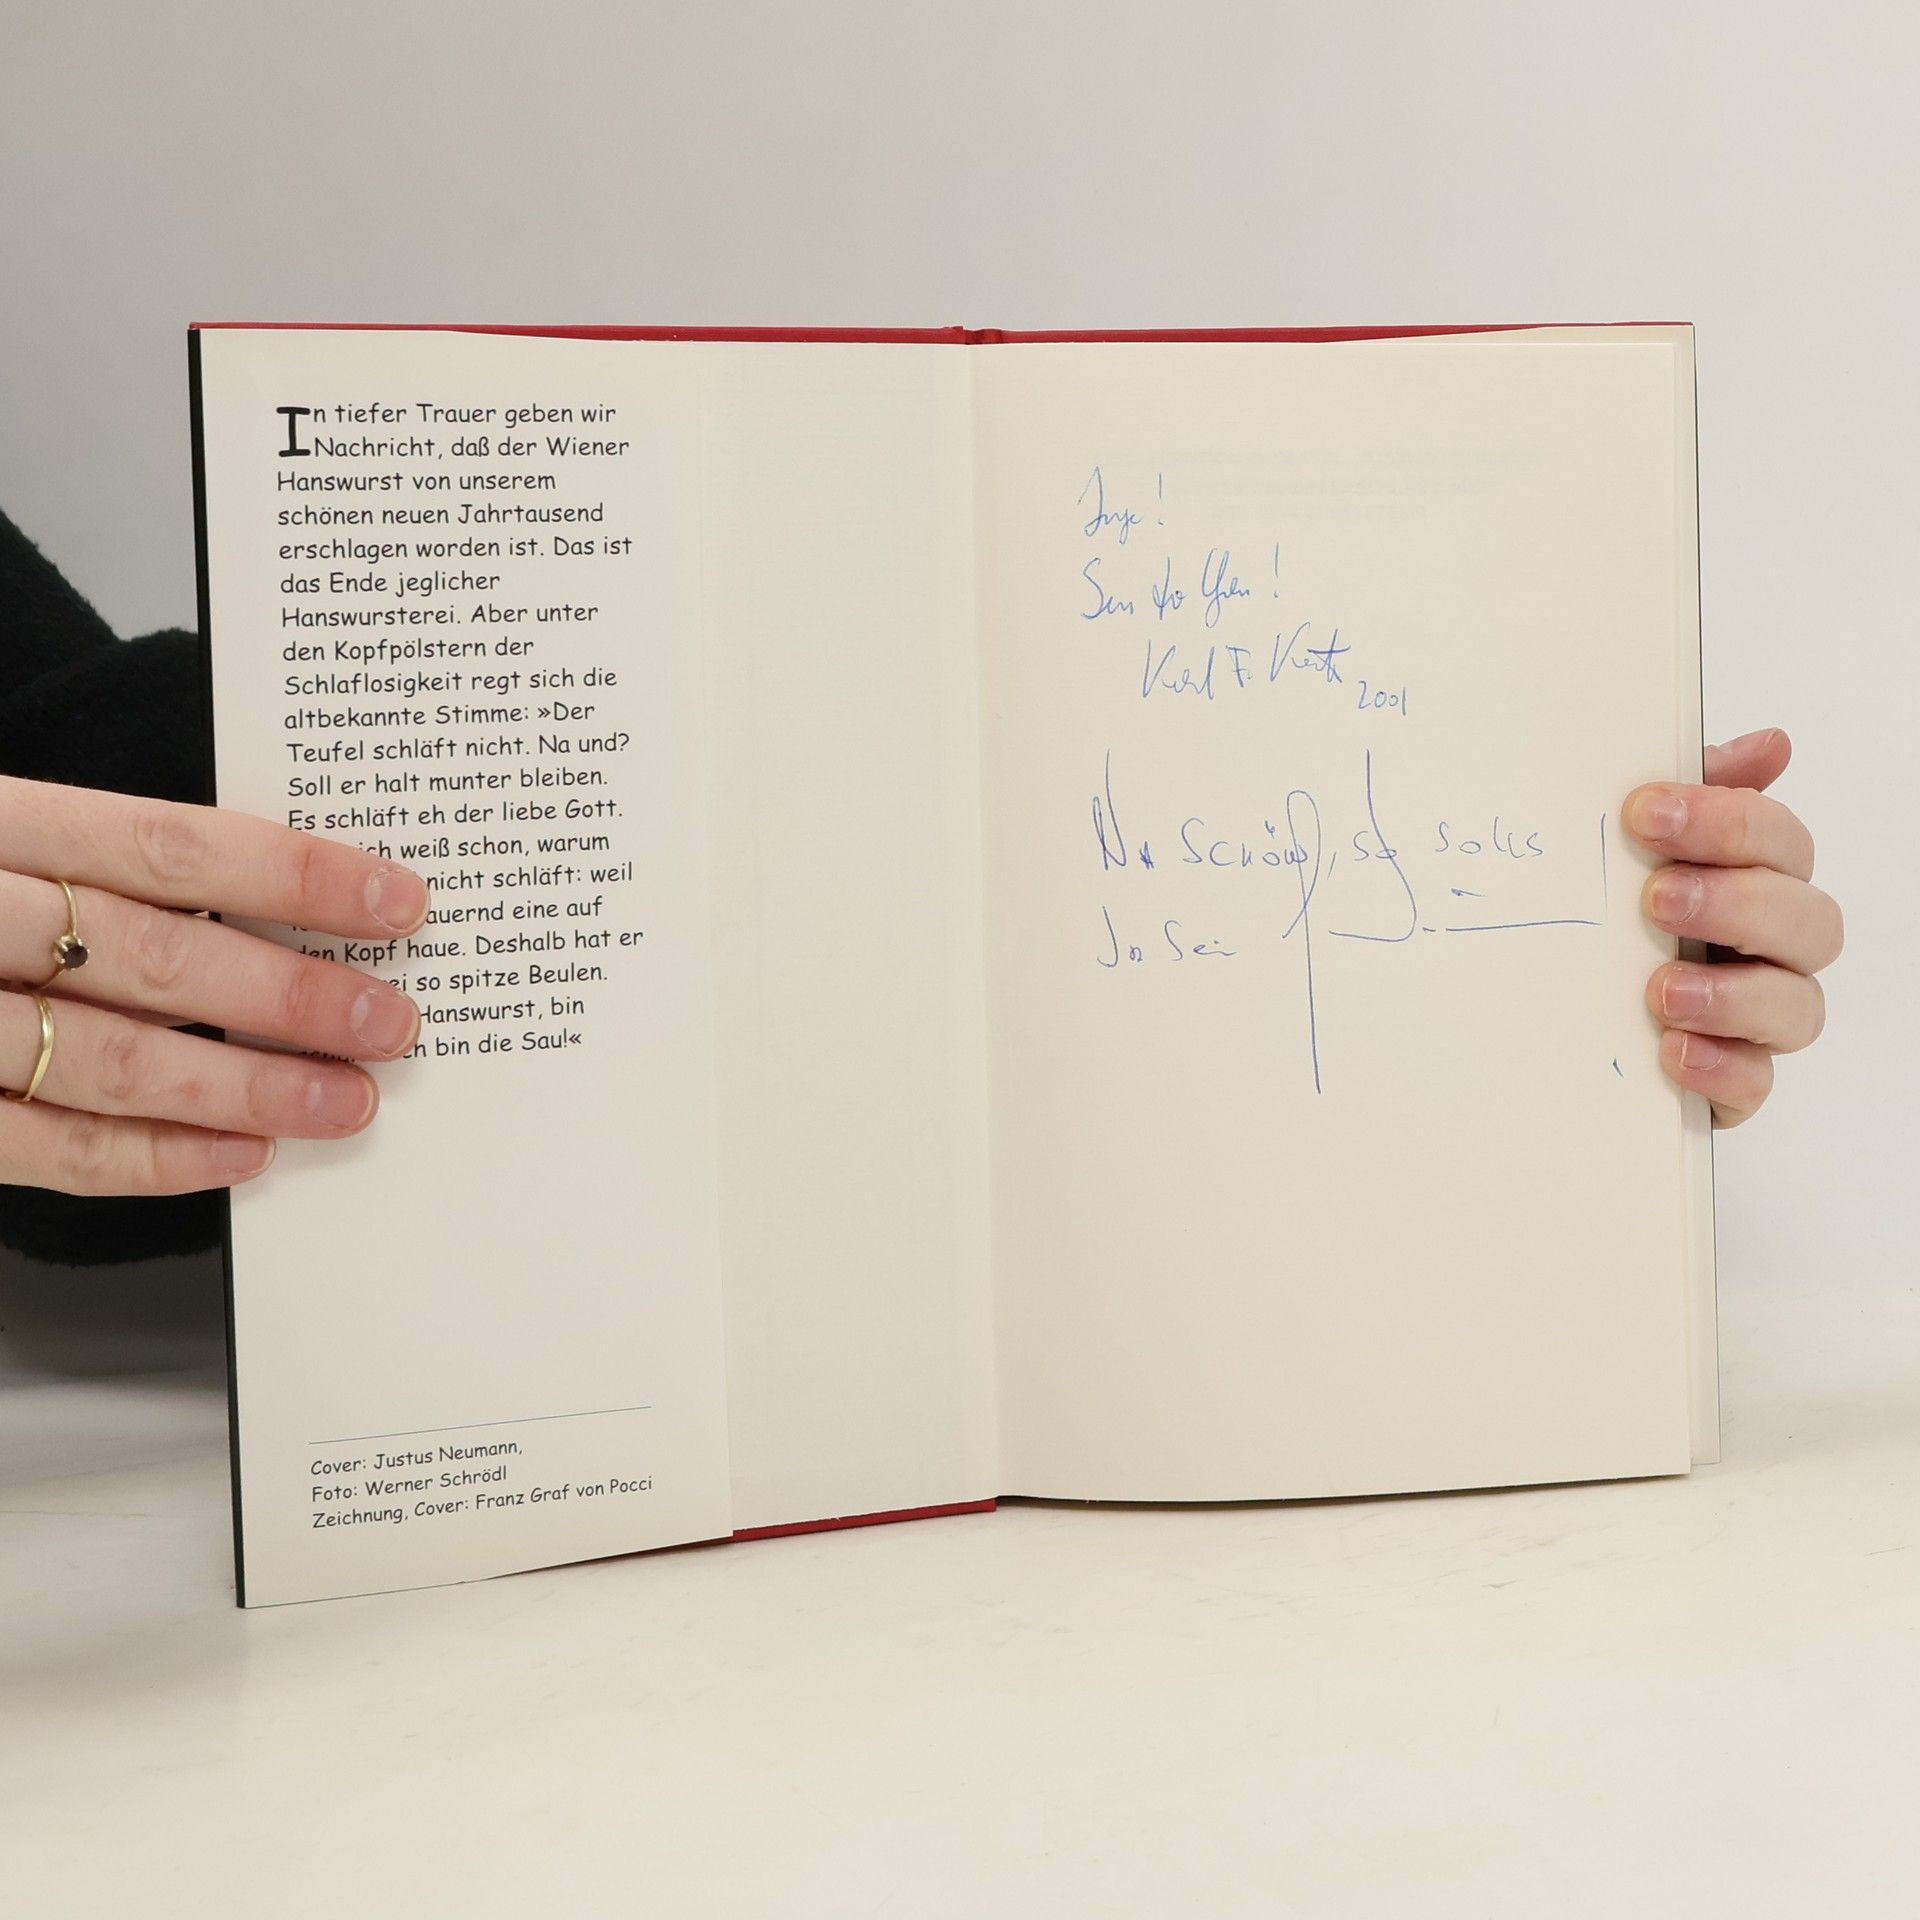 In tiefer Trauer geben wir
Nachricht, daß der Wiener
Hanswurst von unserem
schönen neuen Jahrtausend
erschlagen worden ist. Das ist
das Ende jeglicher
Hanswursterei. Aber unter
den Kopfpölstern der
Schlaflosigkeit regt sich die
altbekannte Stimme: »Der
Teufel schläft nicht. Na und?
Soll er halt munter bleiben.
Es schläft eh der liebe Gott.
ich weiß schon, warum
nicht schläft: weil
dauernd eine auf
den Kopf haue. Deshalb hat er
so spitze Beulen.
Hanswurst, bin
bin die Sau!«
Cover: Justus Neumann,
Foto: Werner Schrödl
Zeichnung, Cover: Franz Graf von Pocci
Inge!
Karl F. 2001
Na schön, so solls
Ja Sein